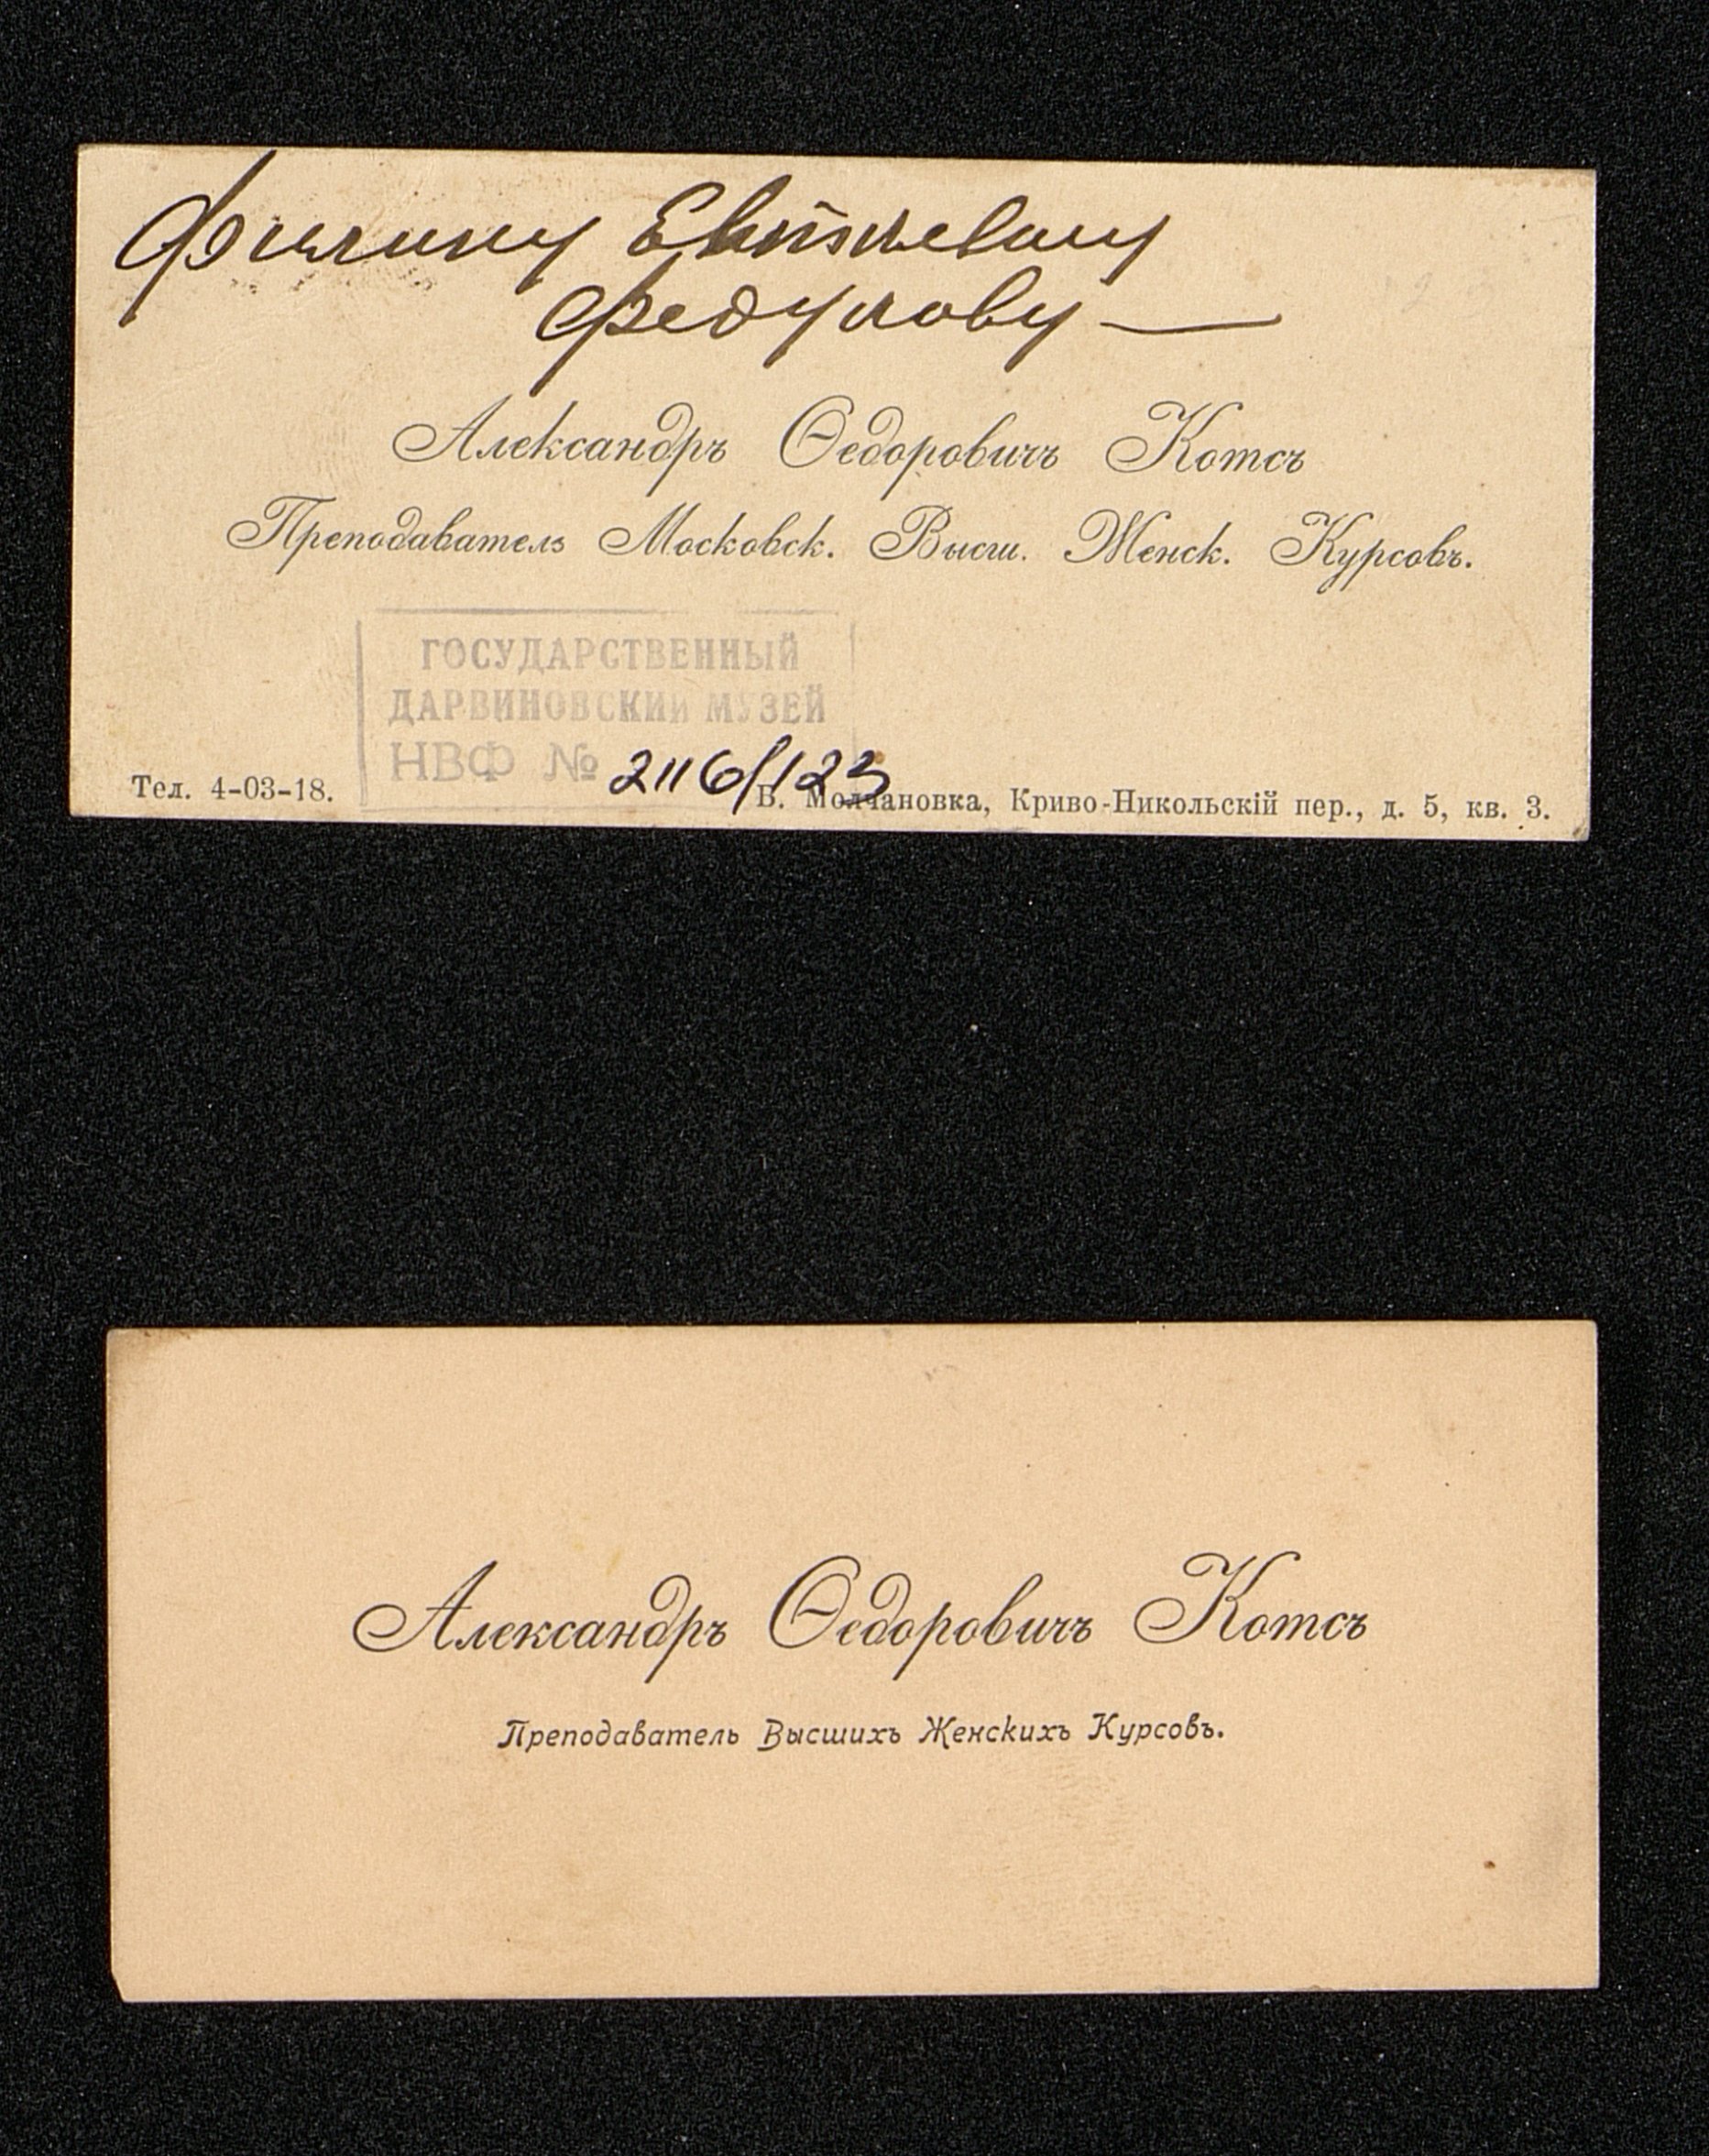 Филиппу Евтихиевичу
Федулову —
Александръ Ѳедоровичъ Котсъ
Преподаватель Московск. Высш. Женск. Курсовъ.
ГОСУДАРСТВЕННЫЙ
ДАРВИНОВСКИЙ МУЗЕЙ
НВФ № 2116/123
Тел. 4-03-18.
Б. Молчановка, Криво-Никольскій пер., д. 5, кв. 3.
Александръ Ѳедоровичъ Котсъ
Преподаватель Высшихъ Женскихъ Курсовъ.